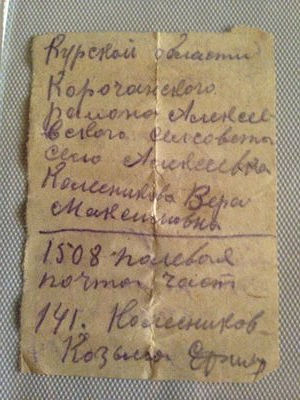 Курской области
Корочанского
района Алексе-
вского сельсовета
село Алексеевка
Колесникова Вера
Максимовна
1508 полевая
почта част
141. Колесников
Козьма